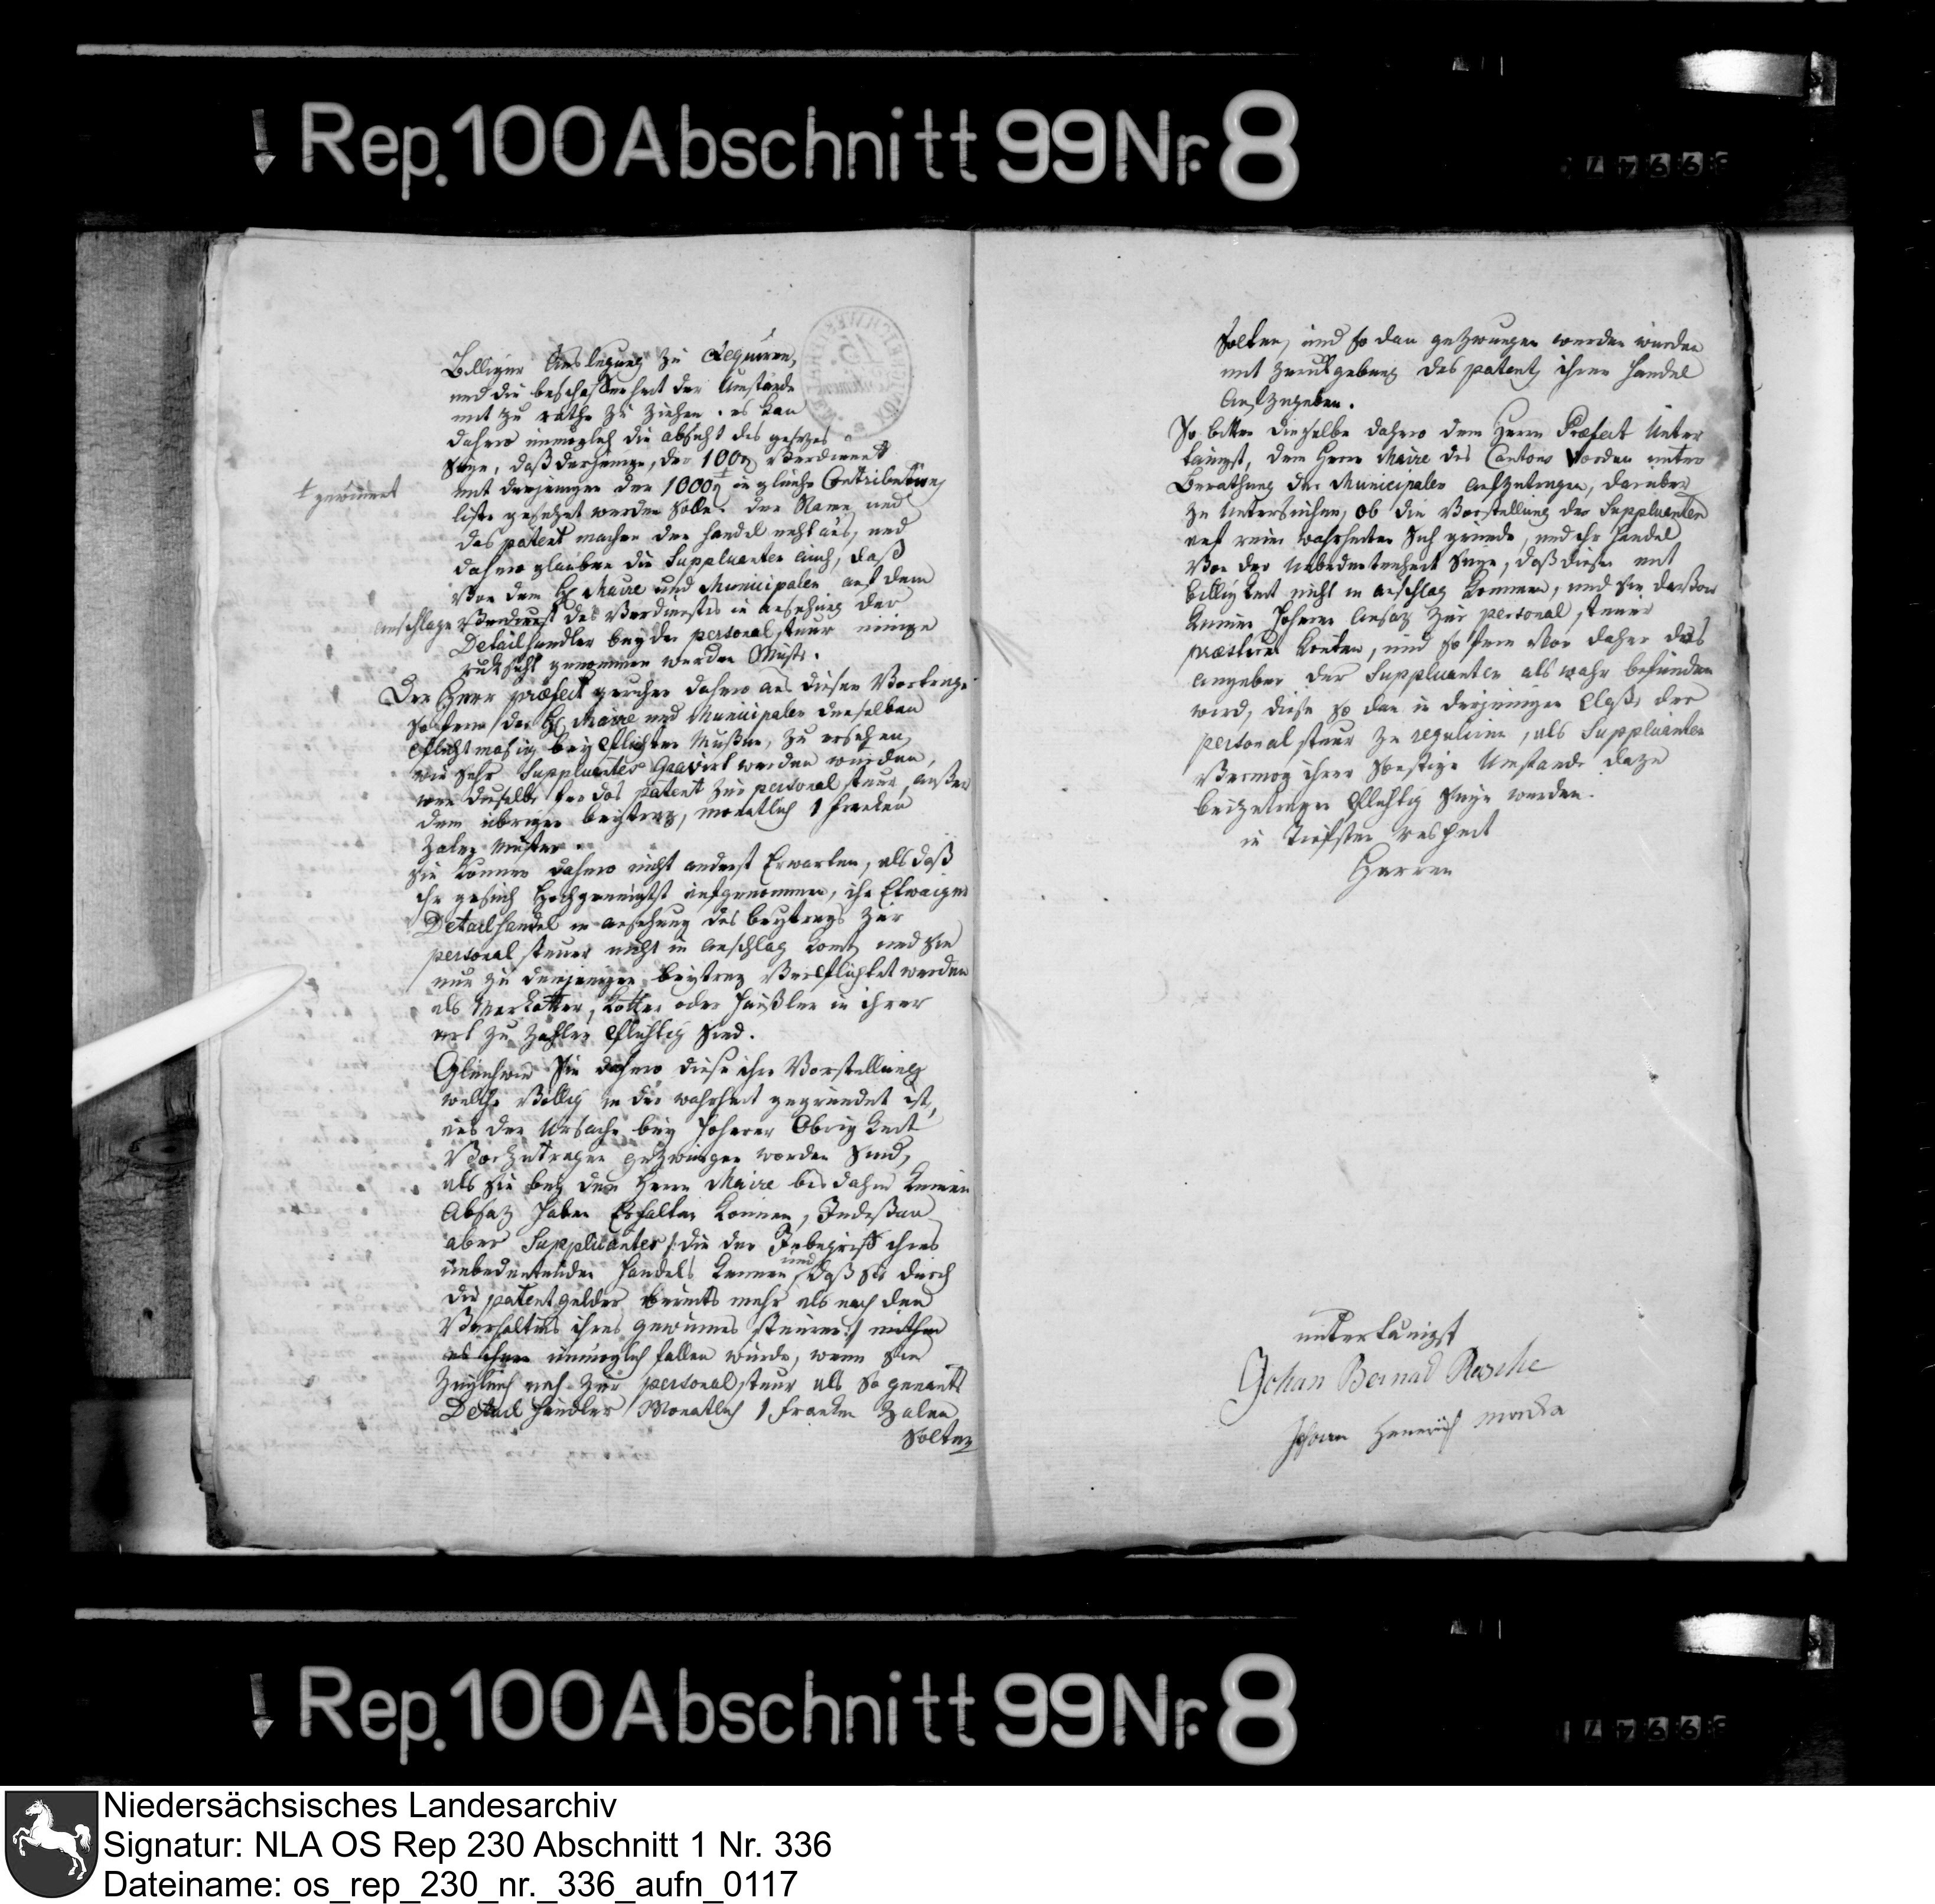 Rep. 100 Abschnitt 99 Nr. 8
Billiger Auslegung zu
und die beschaffenheit der Umstände
mit zu rathe zu ziehen. es kan
dahero unmöglich die absicht des gesezes
seyn, daß derjenige, der 100 Verdienet
mit derjenigen der 1000 in gleiche Contributions
† gewinnet
liste gesetzet werden solle. der Name und
das patent machen den handel nicht aus, und
dahero glauben die Supplicanten auch, daß
Von dem H Maire und Municipalen auf dem
anschlage des Verdienstes in ansehung der
Detailhandler bey der personalsteur einige
rücksicht genommen werden Müste.
Der Herr præfect geruhen dahero aus diesen Vortrage
sofern der H Maire und Municipalen denselben
Pflichtmäsig beypflichten Mußen, zu ersehen,
wie sehr Supplicantes gravirt werden würden,
wen dieselbe für das patent zur personal steur, außer
dem übrigen beytrag, monatlich 1 franken
Zalen müsten.
Sie können dahero nicht anderst Erwarten, als daß
ihr gesuch Hochgeneigtst aufgenommen, ihr Etwaiger
Detailhandel in ansehung des beytrags zur
personal steuer nicht in anschlag komt, und sie
nur zu denjenigen beytrag Verpflichtet werden
als Markötter, Kötter oder Häußler in ihrer
art zu zahlen Pflichtig sind.
Gleichwie Sie dahero diese ihre Vorstellung
welche Völlig in der wahrheit gegründet ist,
aus der Ursache bey Höherer Obrigkeit
Vorzutragen gezwungen worden sind,
als sie bey den Herrn Maire bis dahin keinen
Absaz haben Erhalten können, Indeßen
aber Supplicantes /: die den Inbegriff ihres
unbedeutenden Handels kennen und daß sie durch
die patentgelder bereits mehr als nach den
Verhaltnis ihres gewinnes steuren :/ mithin
es ihnen unmöglich fallen würde, wenn sie
zugleich noch zur personalsteur als so genante
Detail händler Monatlich 1 franken Zalen
Solten
Solten, und so dan gezwungen werden würden
mit zurückgebung des patents ihren Handel
Aufzugeben.
So bitten dieselbe dahero dem Herrn Præfect Unter
tänigst, dem Herrn Maire des Cantons Vörden unter
Berathung der Municipalen aufzutragen, darüber
zu Untersuchen, ob die Vorstellung der Supplicanten
auf reine wahrheiten sich gründe, und ihr Handel
Von der Unbedeutenheit seye, daß dieser mit
billigkeit nicht in anschlag kommen, und sie daßvon
keinen Höheren Ansaz zur personal steuer
præstiren könten, und so fern Nun daher das
angeben der Supplicanten als wahr befunden
wird, diese so dan in derjenigen Claße der
personalsteur zu reguliren, als Supplicanten
Vermög ihrer Umstände dazu
beizutragen Pflichtig seyn werden.
in Tiefsten respect
Herren
unterthänigst
Johan Bernad Rasche
Johan Henrich
Rep. 100 Abschnitt 99 Nr. 8
Niedersächsisches Landesarchiv
Signatur: NLA OS Rep 230 Abschnitt 1 Nr. 336
Dateiname: os_rep_230_nr._336_aufn_0117